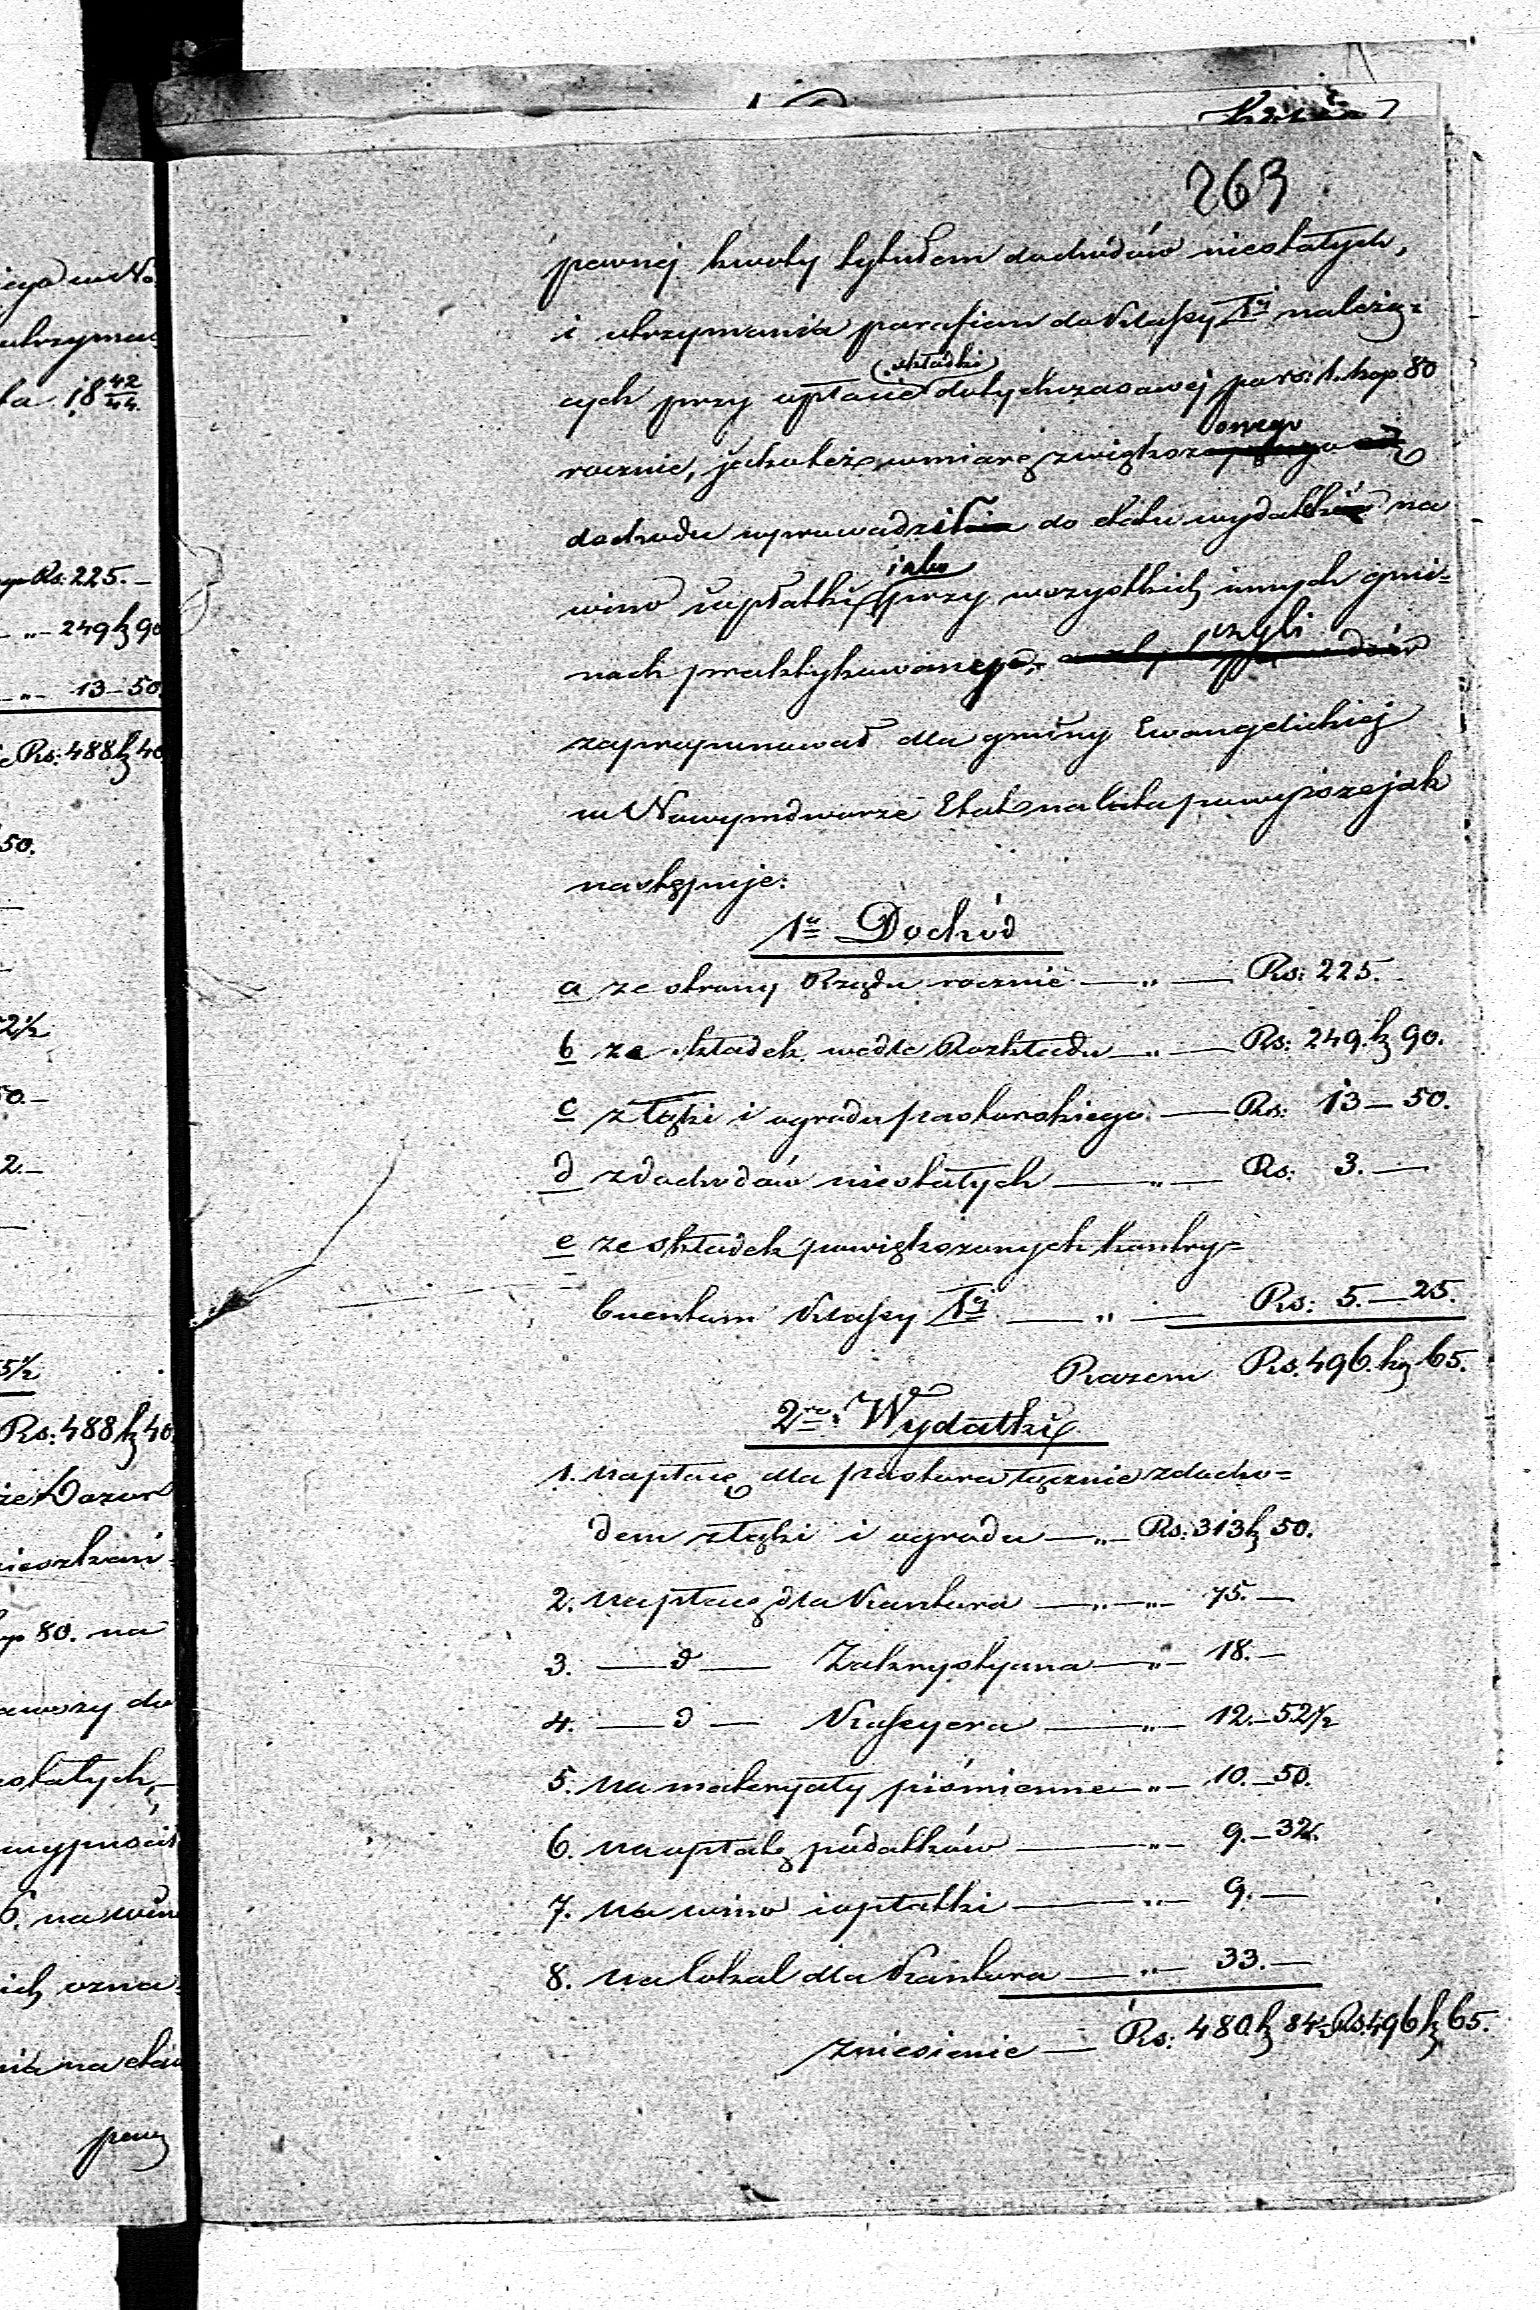 263
pewnej kwoty tytułem dochodów niestałych,
i utrzymania parafian do Klassy Iej należą=
cych przy opłacie składki dotychczasowej po rs: 1. kop 80
rocznie, jakoteż w miarę zwiększonego
dochodu wprowadzić do etatu wydatki na
wino i opłatki jako przy wszystkich innych gmi=
nach praktykowanego, czyli
zaproponować dla gminy Ewangelickiej
w Nowymdworze Etat na lata powyższe jak
następuje:
1o Dochód
a ze strony Rządu rocznie — „ — Rs: 225.
b ze składek wedle Rozkładu — „ — Rs: 249. k 90.
c z łąki i ogrodu pastorskiego — Rs: 13 — 50.
d z dochodów niestałych — „ — Rs: 3. —
e ze składek powiększonych kontry=
buentom Klassy Iej — „ — Rs: 5. — 25.
Razem Rs. 496. k 65.
2re Wydatki
1. na płacę dla pastora łącznie z docho=
dem z łąki i ogrodu — „ — Rs: 313 k 50.
2. na płacę dla Kantora — „ — „ — 75. —
3. — d — Zakrystyana — „ — 18. —
4. — d — Kassyera — „ — 12. — 52½
5. na materyały piśmienne — „ — 10. — 50.
6. na opłatę podatków — „ — 9. — 32.
7. na wino i opłatki — „ — 9. —
8. na lokal dla Kantora — „ — 33. —
zniesienie — Rs: 480 k 84½ Rs. 496 k 65.
Rs: 225. —
„ — 249 k 90
„ — 13 — 50.
Rs: 488 k 40
50.
2½
50. —
2. —
5½
Rs: 488 k 40.
że Dozór
mieszkań=
80. na
do
stałych,
6. na wino
pew